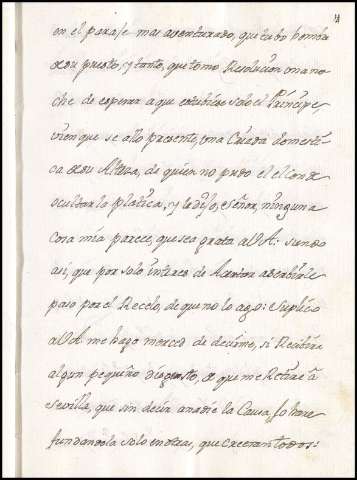 en el paraje mas aventurado, que tubo hombre
de su puesto, y tanto, que tomo Resolucion una no
che de esperar a que estubiese solo el Principe,
vien que se allo presente, una Criada domesti
ca de su Alteza, de quien no pudo el el conde
ocultar la platica, y le dijo, Señor, ninguna
cosa mia parece, que sea grata a V.A: siendo
asi, que por solo interes de
paso por el Recelo, de que no lo ago: Suplico
a V.A me haga merced de decirme, si Recibira
algun pequeño disgusto, de que me Retire a
Sevilla, que sin decir a nadie la Causa, lo hare
fundandola solo en otras, que crean todos: